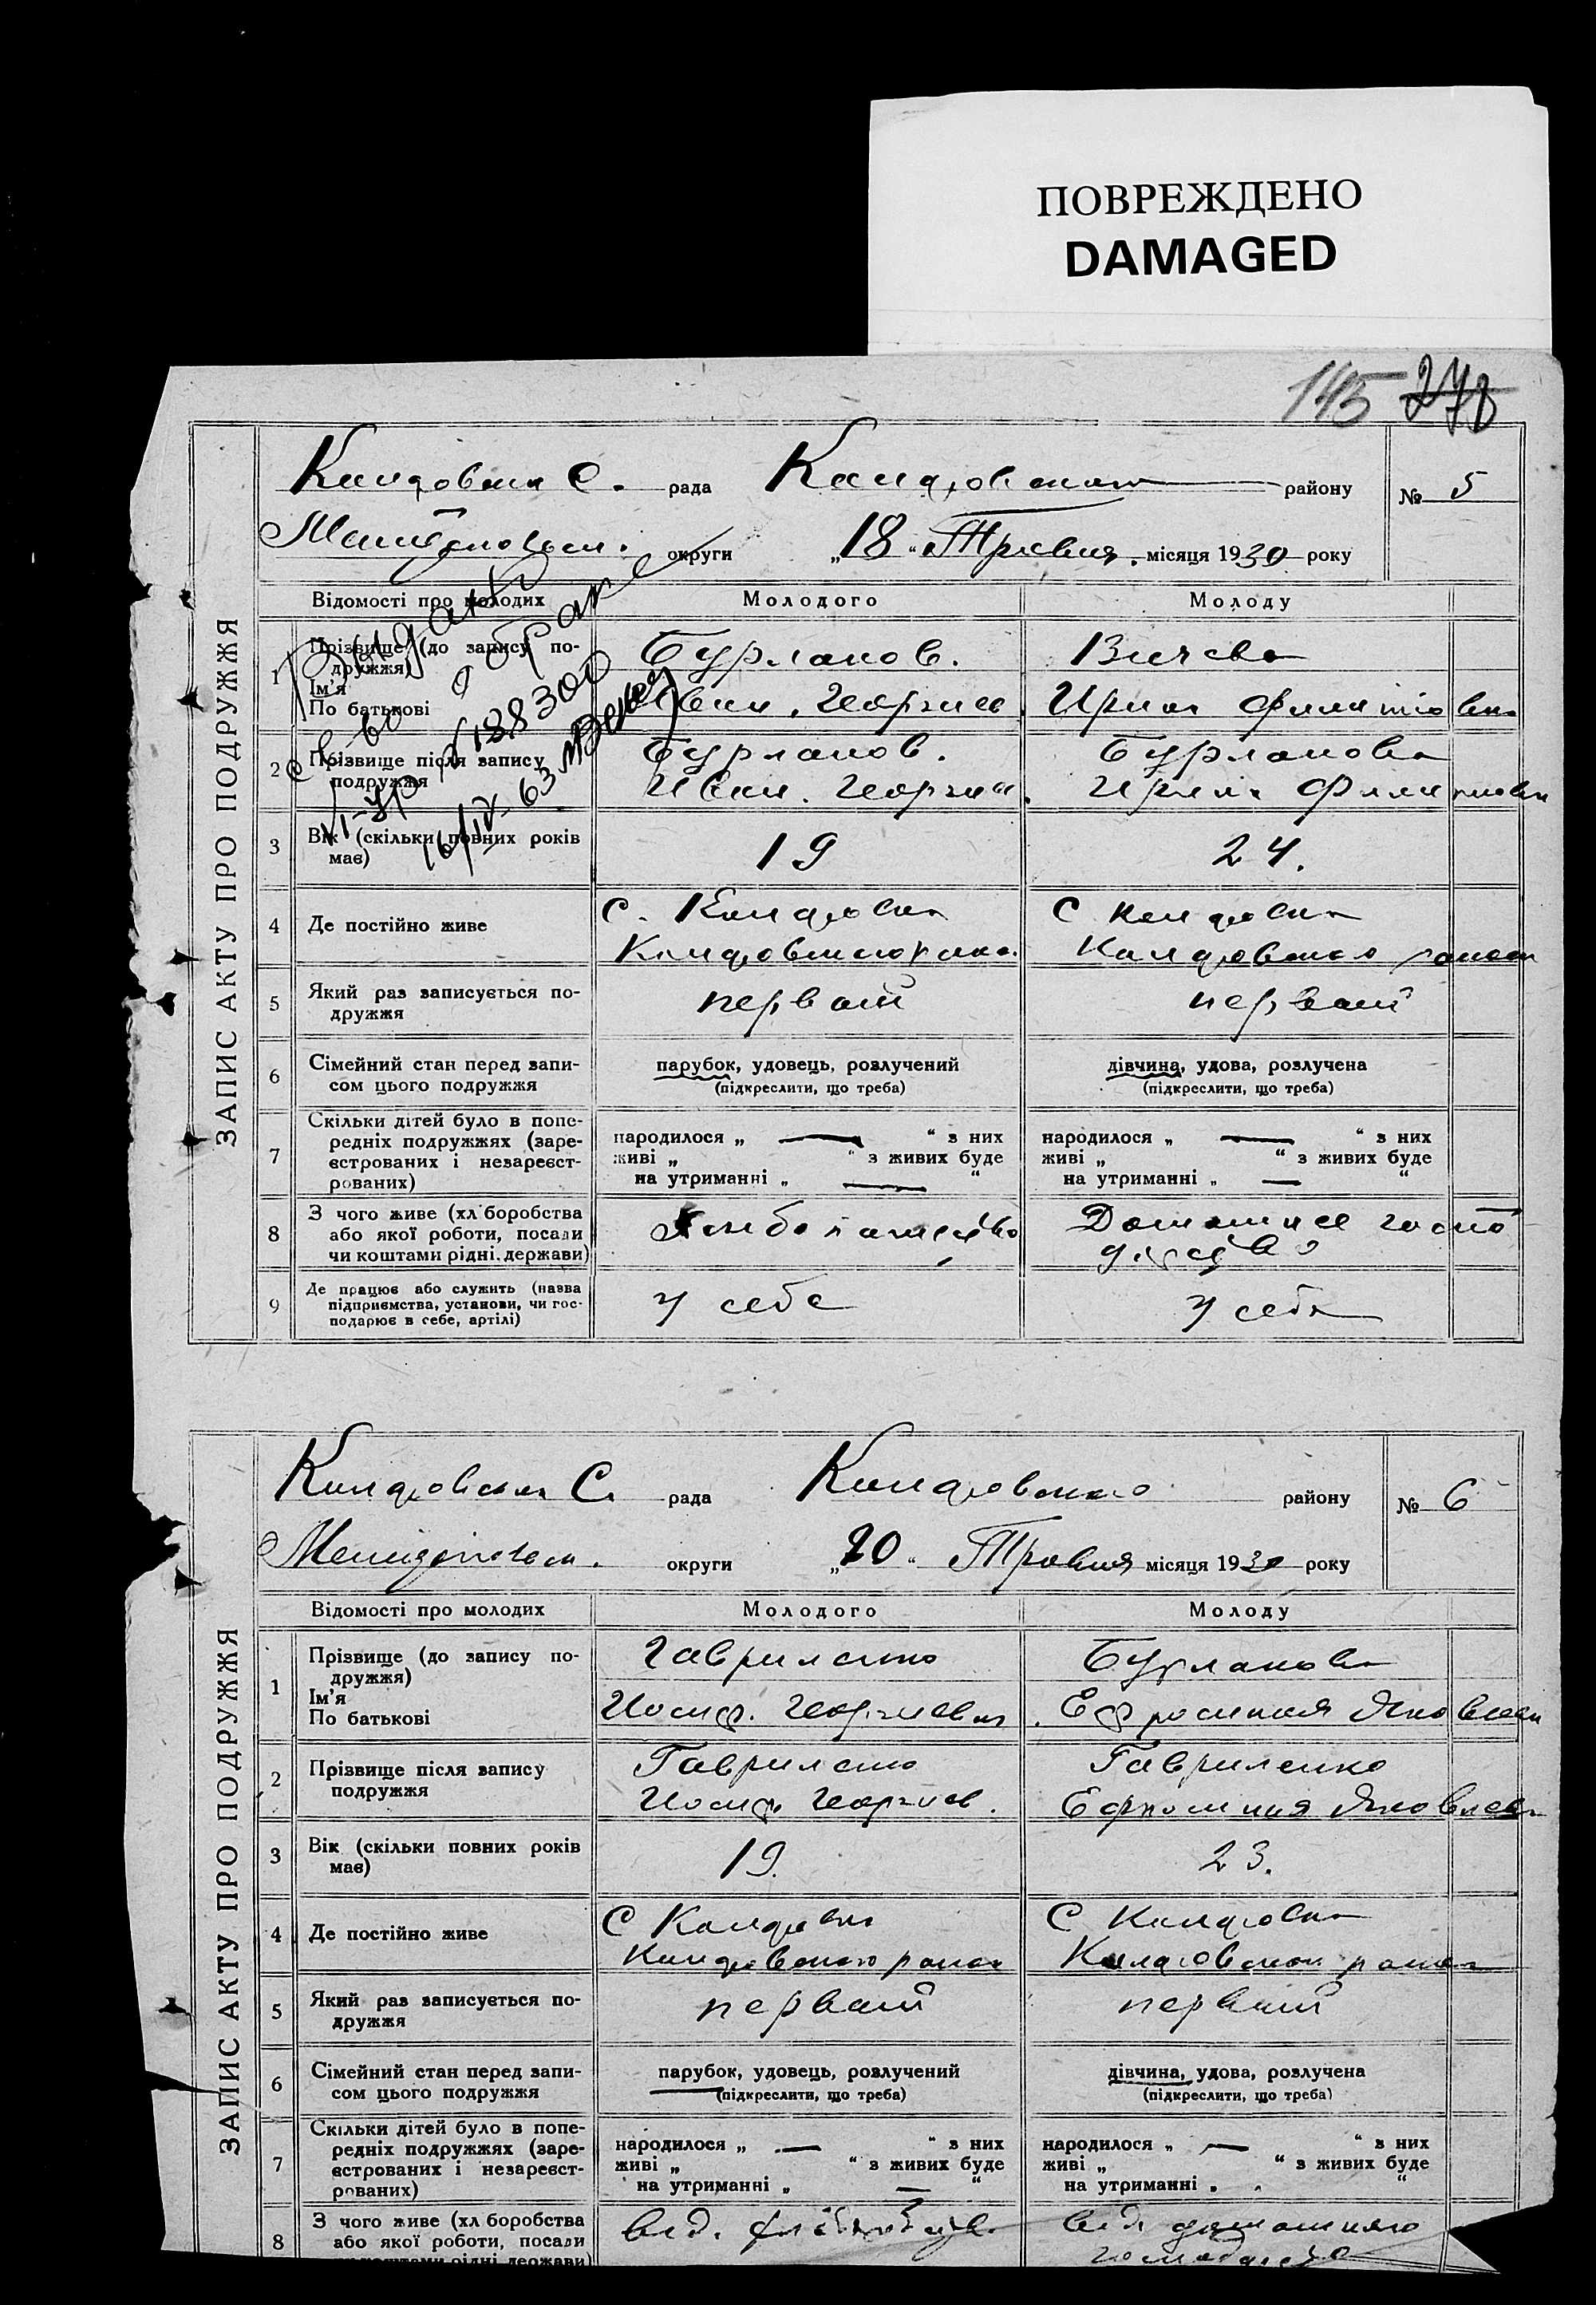 ПОВРЕЖДЕНО
DAMAGED
145 278
ЗАПИС АКТУ ПРО ПОДРУЖЖЯ
С. рада району № 5
округи „18“ Травня місяця 1930 року
Відомості про молодих Молодого Молоду
1 Прізвище (до запису по-
дружжя)
Ім'я
По батькові
Бурлаков.
Иван. Георгиев.
Ирина Филиповна
2 Прізвище після запису
подружжя
Бурлаков.
Иван. Георгиев.
Бурлакова
Ирина Филиповна
Выдано
с-во о браке
№ 188300
16/IV-63
3 Вік (скільки повних років
має)
19
24.
4 Де постійно живе
с.
с
5 Який раз записується по-
дружжя
первый
первый
6 Сімейний стан перед запи-
сом цього подружжя
парубок, удовець, розлучений
(підкреслити, що треба)
дівчина, удова, розлучена
(підкреслити, що треба)
7 Скільки дітей було в попе-
редніх подружжях (заре-
єстрованих і незареєст-
рованих)
народилося „ — “ з них
живі „ “ з живих буде
на утриманні „ — “
народилося „ — “ з них
живі „ “ з живих буде
на утриманні „ — “
8 З чого живе (хл боробства
або якої роботи, посади
чи коштами рідні, держави)
Домашнее господарство
9 Де працює або служить (назва
підприємства, установи, чи гос-
подарює в себе, артілі)
у себе
у себя
ЗАПИС АКТУ ПРО ПОДРУЖЖЯ
С. рада району № 6
округи „20“ Травня місяця 1930 року
Відомості про молодих Молодого Молоду
1 Прізвище (до запису по-
дружжя)
Ім'я
По батькові
Гавриленко
Иосиф. Георгиевич
Бурлакова
Ефросиния Яковлевн
2 Прізвище після запису
подружжя
Гавриленко
Иосиф. Георгиев.
Гавриленко
Ефросиния Яковлевн
3 Вік (скільки повних років
має)
19.
23.
4 Де постійно живе
С
С
5 Який раз записується по-
дружжя
первый
первый
6 Сімейний стан перед запи-
сом цього подружжя
парубок, удовець, розлучений
(підкреслити, що треба)
дівчина, удова, розлучена
(підкреслити, що треба)
7 Скільки дітей було в попе-
редніх подружжях (заре-
єстрованих і незареєст-
рованих)
народилося „ — “ з них
живі „ “ з живих буде
на утриманні „ — “
народилося „ — “ з них
живі „ “ з живих буде
на утриманні „ “
8 З чого живе (хл боробства
або якої роботи, посади
коштами рідні, держави)
від.
від домашнього